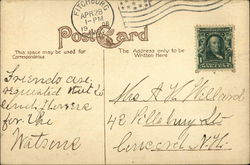 FITCHBURG
APR 28
1-PM
Post Card
This space may be used for
Correspondence
The Address only to be
Written Here
Friends are
requested that to
send flowers
for the
Watsons
Mrs A. K. Willard
42 Pillsbury St
Concord N.H.